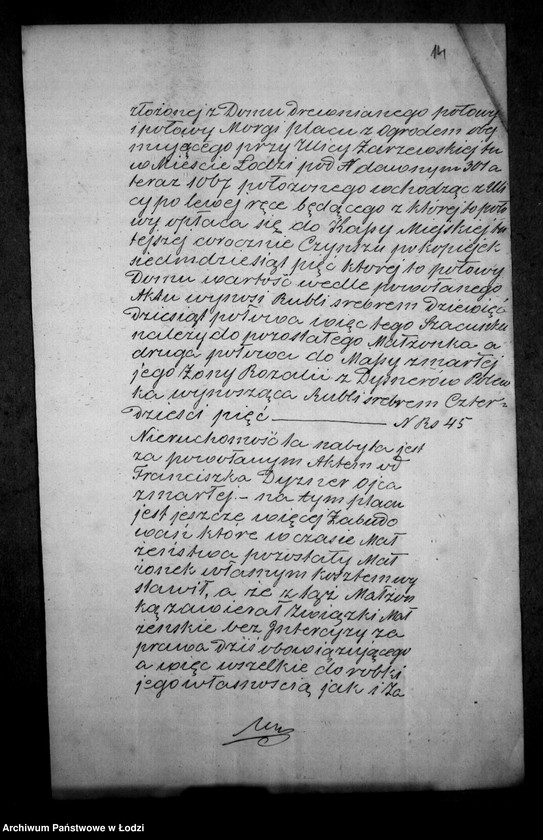 14
złożonej z Domu drewnianego połowy
i połowy Morgi placu z ogrodem obej
mującego przy Ulicy Zarzewskiej tu
w Mieście Łodzi pod N dawnym 301a
teraz 1067 położonego wchodząc z Uli
cy po lewej ręce będącego z której to poło
wy opłaca się do Kassy Miejskiej tu
tejszej corocznie Czynszu po kopiejek
siedmdziesiąt pięć której to połowy
Domu wartość wedle powołanego
Aktu wynosi Rubli srebrem Dziewięć
Dziesiąt połowa więc tego Szacunku
należy do pozostałego Małżonka a
druga połowa do Massy zmarłej
jego Żony Rozalii z Dyznerów
ka wynosząca Rubli srebrem Czter-
Dzieści pięć — N Rs 45
Nieruchomość ta nabyta jest
za powołanym Aktem od
Franciszka Dyzner ojca
zmarłej. – na tym placu
jest jeszcze więcej Zabudo
wań które w czasie Mał
żeństwa pozostały Mał
żonek własnym kosztem wy
stawił, a że z tąż Małżon
ką zawierał Związki Mał
żeńskie bez Intercyzy za
prawa Dziś obowiązującego
a więc wszelkie do robki
jego własnością jak i Za
Archiwum Państwowe w Łodzi